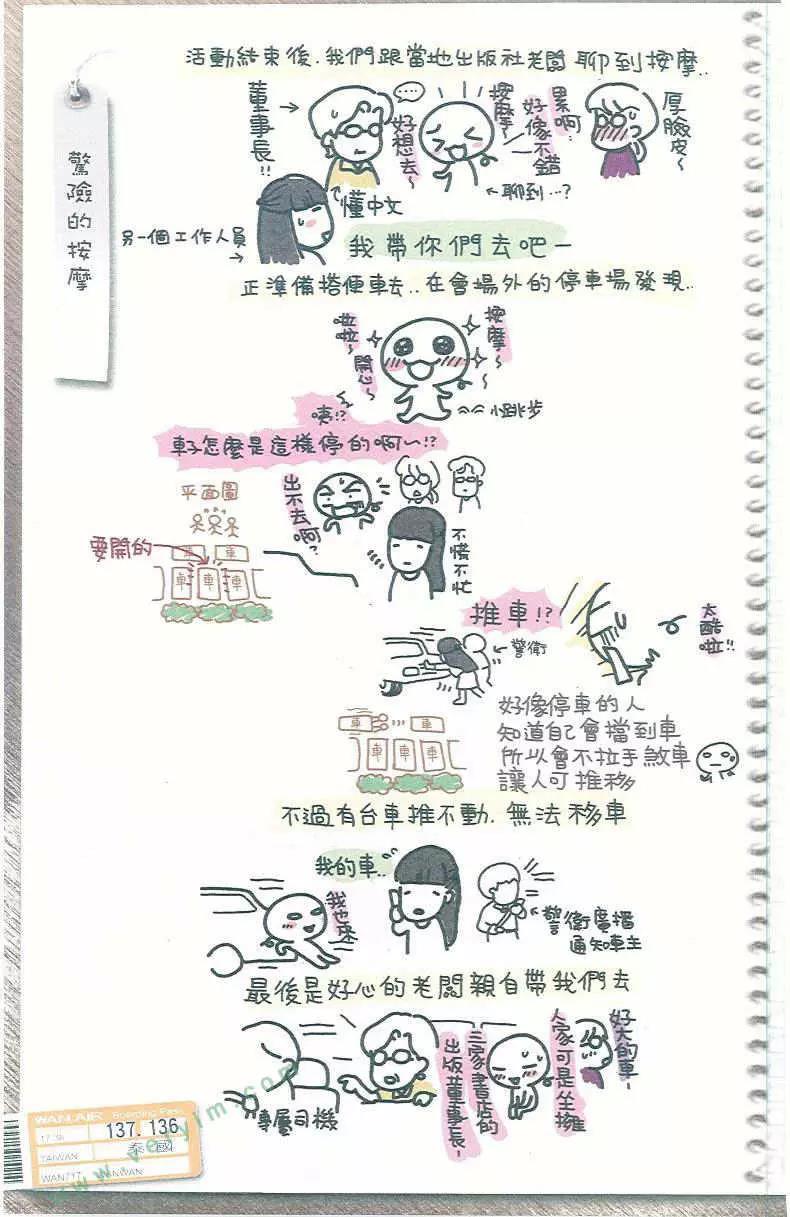 活動結束後.我們跟當地出版社老闆聊到按摩..
驚險的按摩
董事長!!
好想去~
按摩~
好像不錯
累啊~
厚臉皮~
←聊到…?
懂中文
另一個工作人員
我帶你們去吧-
正準備搭便車去..在會場外的停車場發現..
啦啦~
開心~
按摩~
小跳步
咦!?
車子怎麼是這樣停的啊~!?
平面圖
出不去啊?
不慌不忙
要開的
車 車
車 車 車
推車!?
太酷啦!!
警衛
好像停車的人
知道自己會擋到車
所以會不拉手煞車
讓人可推移
車 車
車 車 車
不過有台車推不動.無法移車
我的車..
我也來
警衛廣播
通知車主
最後是好心的老闆親自帶我們去
專屬司機
三家書店的
出版董事長-
人家可是坐擁
好大的車-
WAN AIR Boarding Pass
137.136
TAIWAN
泰國
WAN717
WANWAN
www.veryim.com